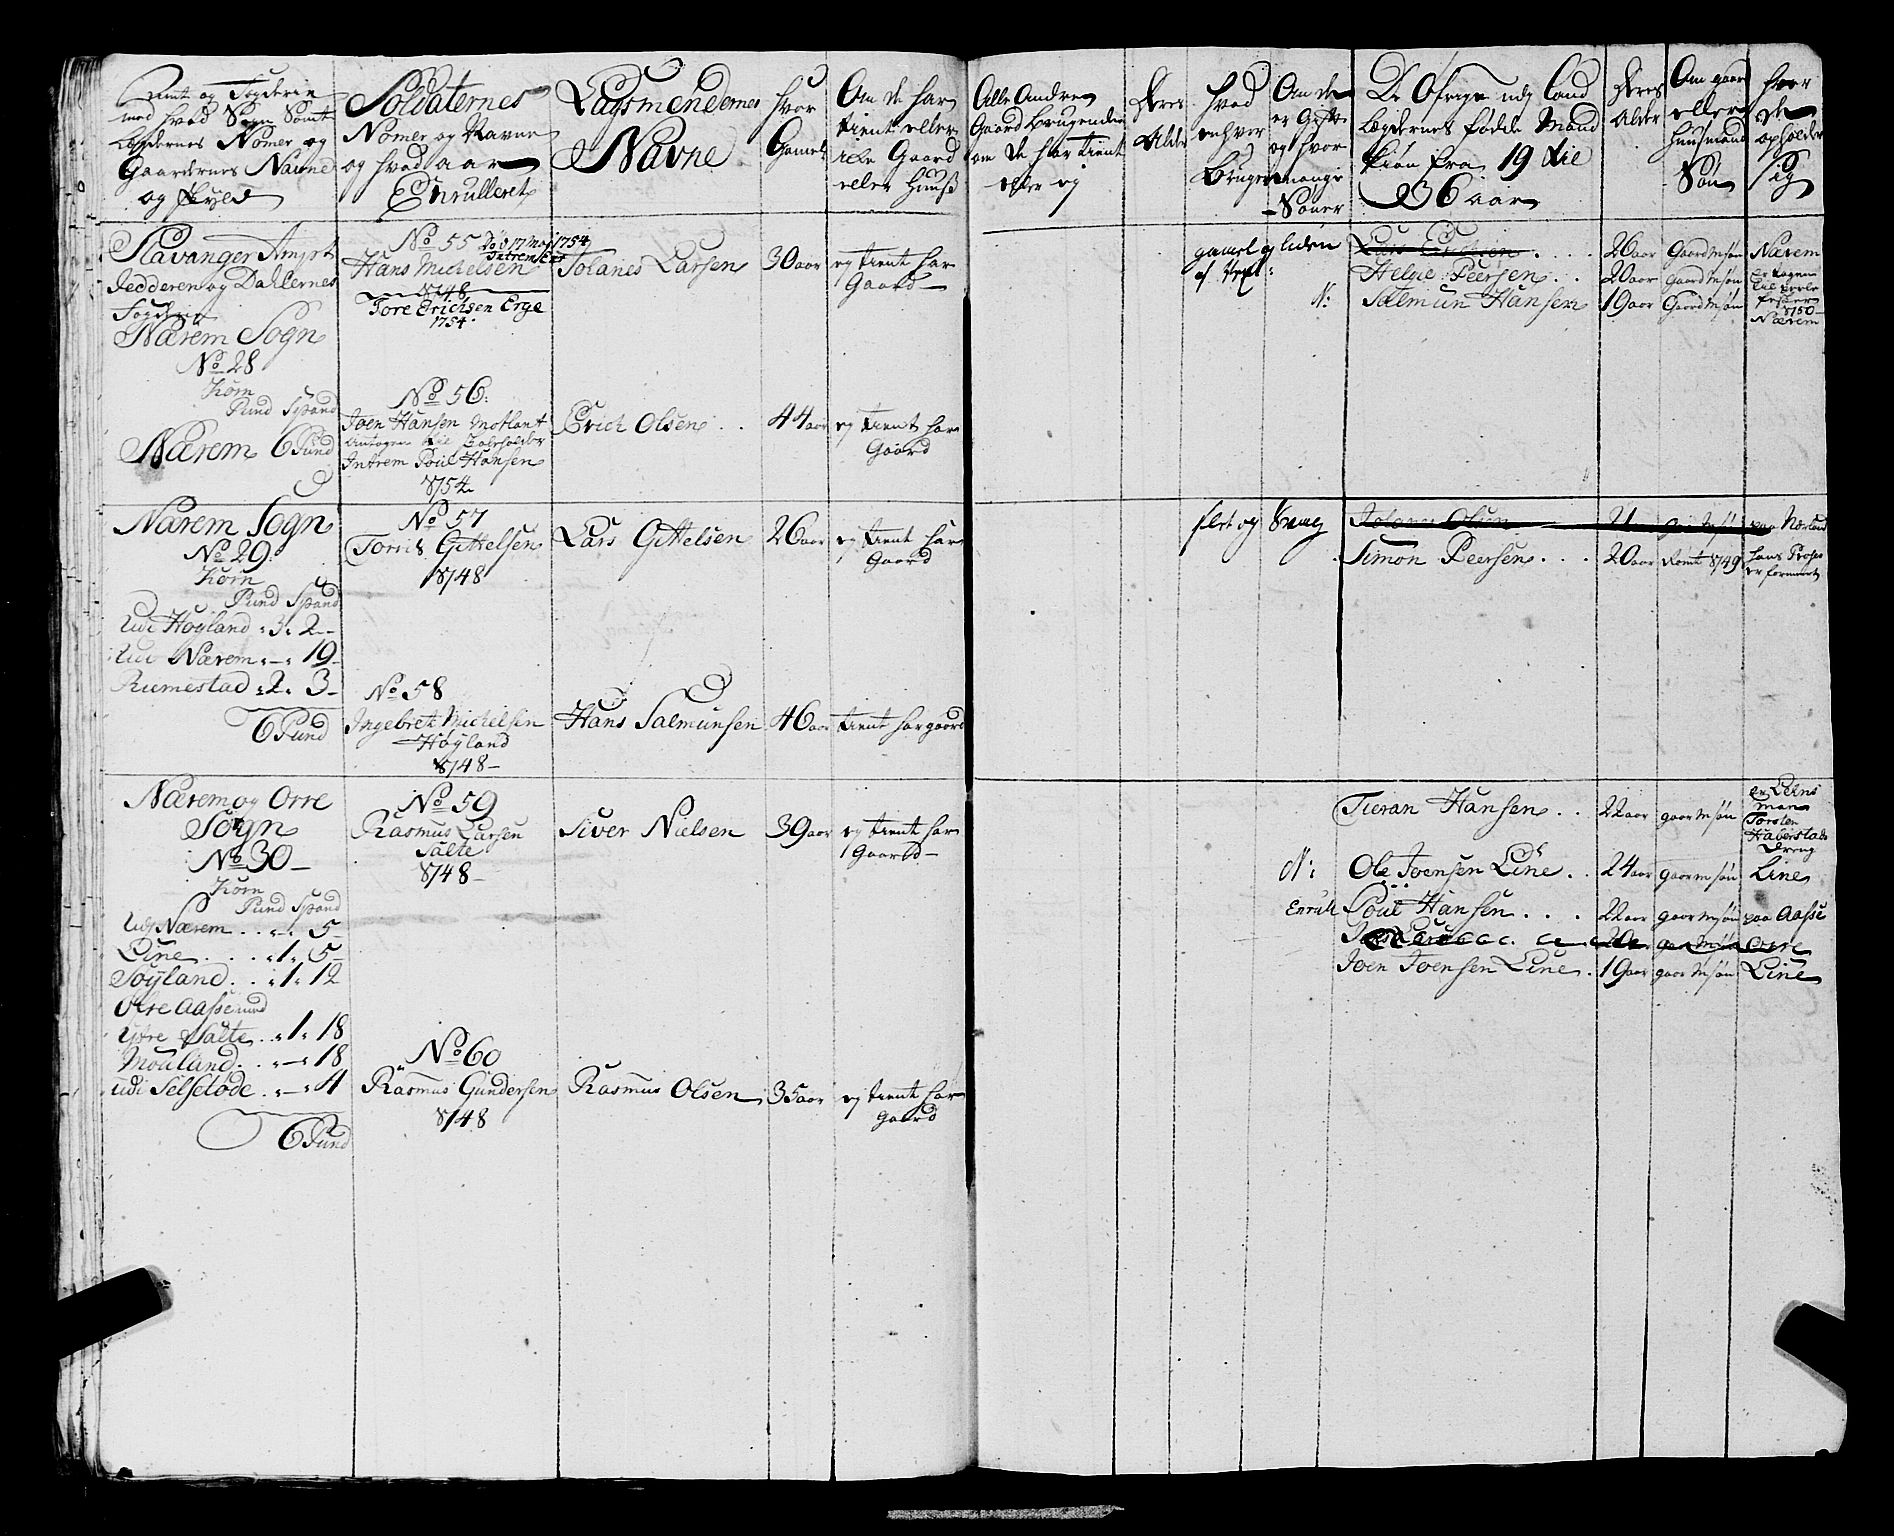 Amt og Fogderie
med hvad Sogn Samt
Legdernes Nomer og
Gaardernes Navne
og Skyld
Soldaternes
Nomer og Navne
og hvad aar
Enrulleret
Laugsmendernes
Navne
hvor
Gamel
Om de har
tient eller
icke Gaard
eller Huuss
Alle Andre
Gaard brugende
om de har tient
eller ej
Deres
Alder
hvad
enhver
Bruger
Om de
er Gifte
og hvor
mange
Sønner
De Øfrige udj Land
Legdernes fødde Mand
kiøn fra 19 til
36 aar
Deres
Alder
Om gaard
eller
Huusmand
Søn
hvor
de
opholder
sig
Stavanger Ampt
Jedderen og Dahlernes
Fogderie
Nærem Sogn
No 28
Korn
Pund Spand
Nærem 6 Pund
No 55 Død 17 Maj 1754
Hans Michelsen
1748
Tore Erichsen Erge
1754
Tolanes Larsen 30 aar ej tient har
Gaard
gamel og liden
af Vext
Lars Erichsen 26 aar Gaardmsøn Nærem
Helge Peersen 20 aar Gaardmsøn
N: Salmun Hansen 19 aar Gaardmsøn
1750
Nærem
No 56
Joen Hansen Motland
Intrem Poul Hansen
1754
Erich Olsen 44 aar ej tient har
Gaard
Nærem Sogn
No 29
Korn
Pund Spand
Udi Høyland 3 2
Udi Nærem 19
Riemestad 2 3
6 Pund
No 57
Torris Gittelsen
1748
Lars Gittelsen 26 aar ej tient har
Gaard
slet og Svang
Johanes Olsen 21
Simon Peersen 20 aar Romt 1749
No 58
Ingebret Michelsen
Høyland
1748
Hans Salmunsen 46 aar tient har gaard
Nærem og Orre
Sogn
No 30
Korn
Pund Spand
Udj Nærem 5
Line 1 5
Søyland 1 12
Øfre Aasse
Yttre Salte 1 18
Mouland 18
udi Selstøde 4
6 Pund
No 59
Rasmus Larsen
Salte
1748
Siver Nielsen 39 aar ej tient har
Gaard
Tieran Hansen 22 aar gaarmsøn er Lens
man
Torsten
Haberstads
Dreng
N: Ole Joensen Line 24 aar gaarmsøn Line
Enrull Poul Hansen 22 aar gaarmsøn paa Aasse
20 orre
Joen Joensen Line 19 aar gaarmsøn Line
No 60
Rasmus Gundersen
1748
Rasmus Olsen 35 aar ej tient har
gaard